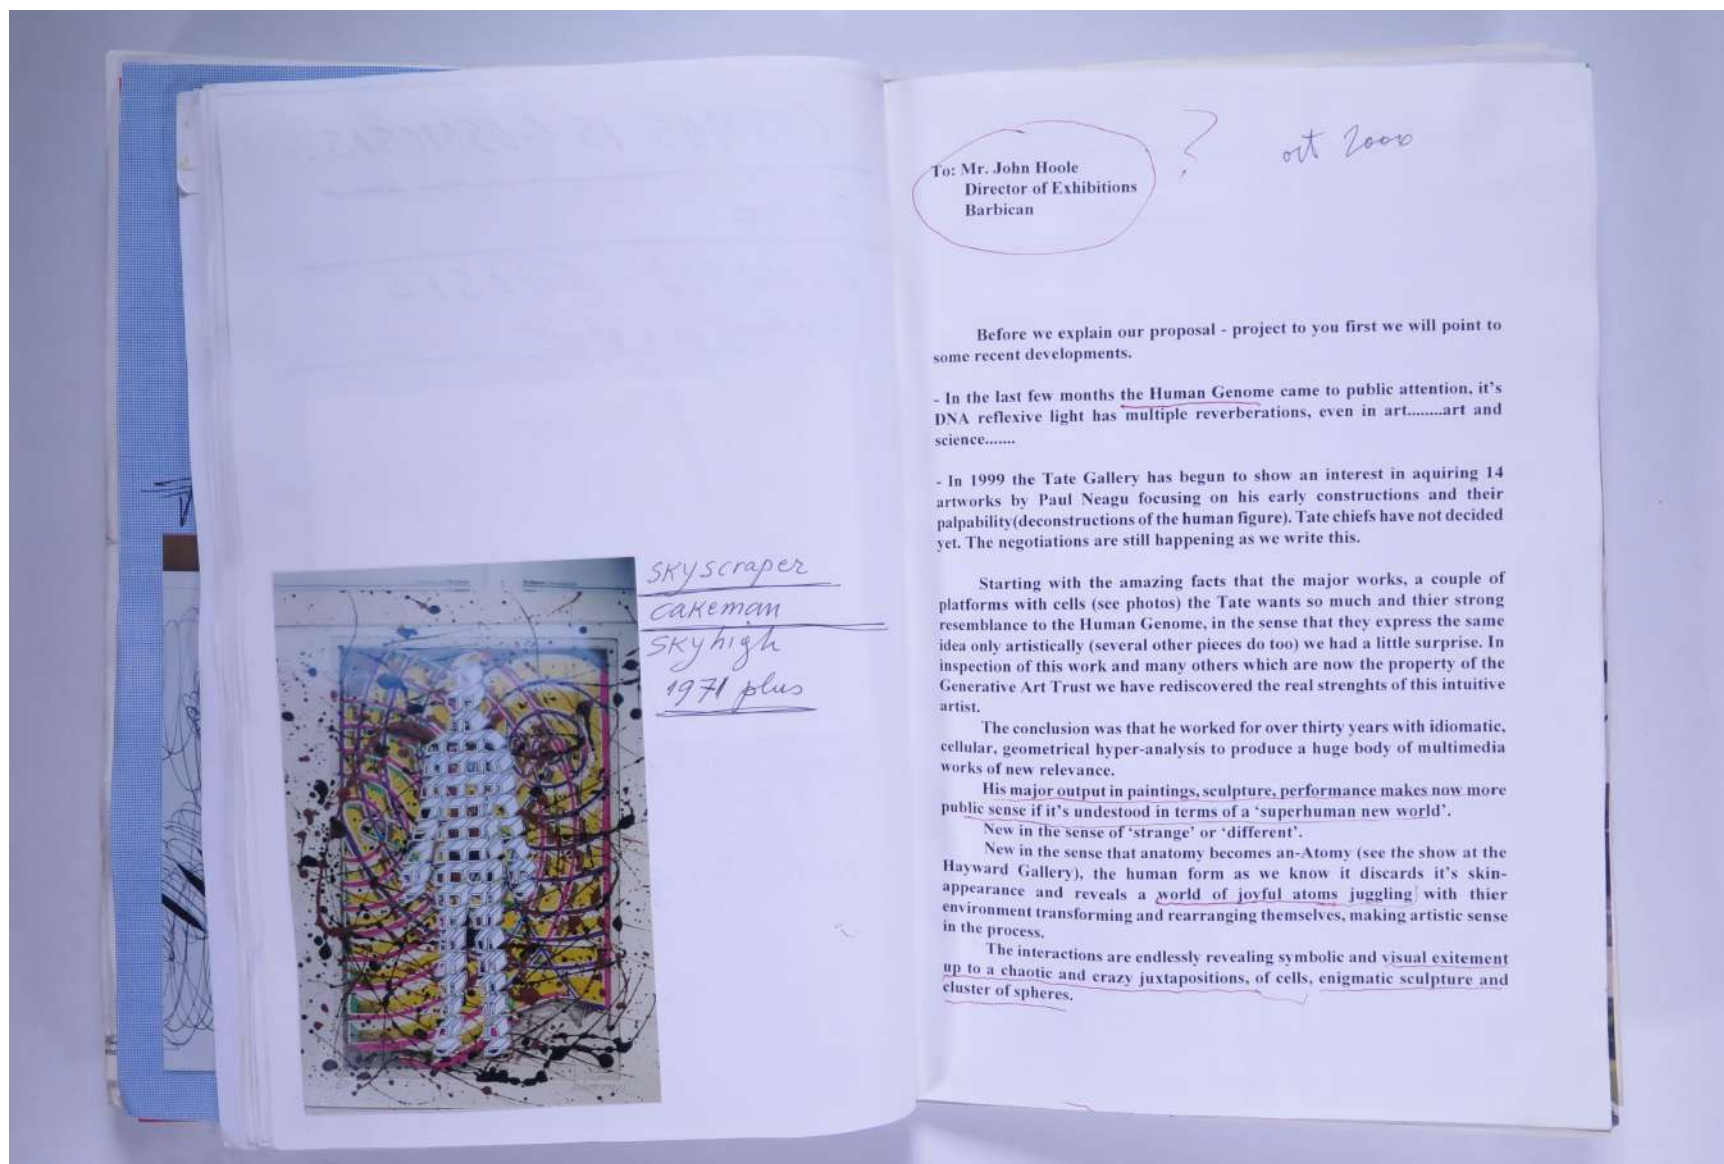 SKYscraper
CAKEMAN
SKYhigh
1971 plus
To: Mr. John Hoole
Director of Exhibitions
Barbican
?
oct 2000
Before we explain our proposal - project to you first we will point to
some recent developments.
- In the last few months the Human Genome came to public attention, it's
DNA reflexive light has multiple reverberations, even in art........art and
science.......
- In 1999 the Tate Gallery has begun to show an interest in aquiring 14
artworks by Paul Neagu focusing on his early constructions and their
palpability(deconstructions of the human figure). Tate chiefs have not decided
yet. The negotiations are still happening as we write this.
Starting with the amazing facts that the major works, a couple of
platforms with cells (see photos) the Tate wants so much and thier strong
resemblance to the Human Genome, in the sense that they express the same
idea only artistically (several other pieces do too) we had a little surprise. In
inspection of this work and many others which are now the property of the
Generative Art Trust we have rediscovered the real strenghts of this intuitive
artist.
The conclusion was that he worked for over thirty years with idiomatic,
cellular, geometrical hyper-analysis to produce a huge body of multimedia
works of new relevance.
His major output in paintings, sculpture, performance makes now more
public sense if it's undestood in terms of a 'superhuman new world'.
New in the sense of 'strange' or 'different'.
New in the sense that anatomy becomes an-Atomy (see the show at the
Hayward Gallery), the human form as we know it discards it's skin-
appearance and reveals a world of joyful atoms juggling with thier
environment transforming and rearranging themselves, making artistic sense
in the process.
The interactions are endlessly revealing symbolic and visual exitement
up to a chaotic and crazy juxtapositions, of cells, enigmatic sculpture and
cluster of spheres.